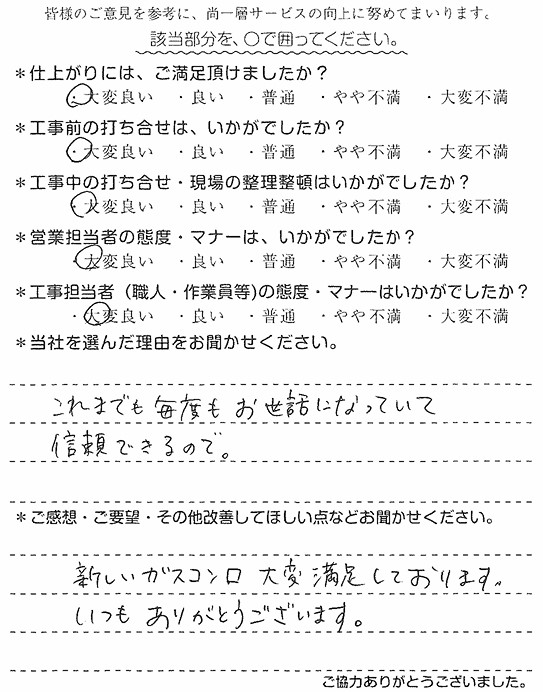 皆様のご意見を参考に、尚一層サービスの向上に努めてまいります。
該当部分を、〇で囲ってください。
＊仕上がりには、ご満足頂けましたか？
・大変良い ・良い ・普通 ・やや不満 ・大変不満
＊工事前の打ち合せは、いかがでしたか？
・大変良い ・良い ・普通 ・やや不満 ・大変不満
＊工事中の打ち合せ・現場の整理整頓はいかがでしたか？
・大変良い ・良い ・普通 ・やや不満 ・大変不満
＊営業担当者の態度・マナーは、いかがでしたか？
・大変良い ・良い ・普通 ・やや不満 ・大変不満
＊工事担当者（職人・作業員等)の態度・マナーはいかがでしたか？
・大変良い ・良い ・普通 ・やや不満 ・大変不満
＊当社を選んだ理由をお聞かせください。
これまでも毎度もお世話になっていて
信頼できるので。
＊ご感想・ご要望・その他改善してほしい点などお聞かせください。
新しいガスコンロ 大変満足しております。
いつもありがとうございます。
ご協力ありがとうございました。